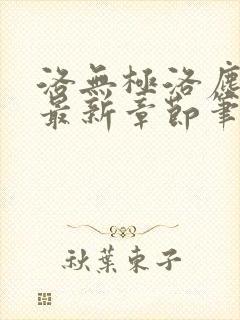 洛無極洛塵
最新章節筆
秋葉東子